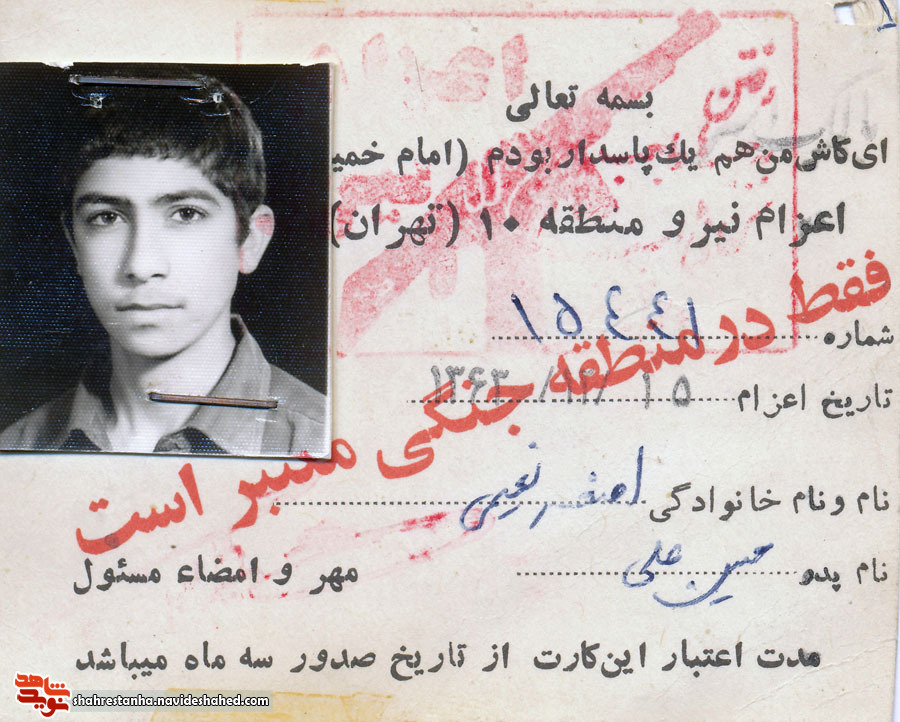 بسمه تعالی
ای کاش من هم یک پاسدار بودم (امام خمی
اعزام نیر و منطقه ۱۰ (تهران)
شماره ۱۵۴۴۱
تاریخ اعزام ۱۳۶۳/۱۲/۱۵
نام و نام خانوادگی اصغر نعیمی
نام پدر حسین علی
مهر و امضاء مسئول
مدت اعتبار این کارت از تاریخ صدور سه ماه میباشد
فقط در منطقه جنگی معتبر است
رفتن
نوید شاهد
shahrestanha.navideshahed.com